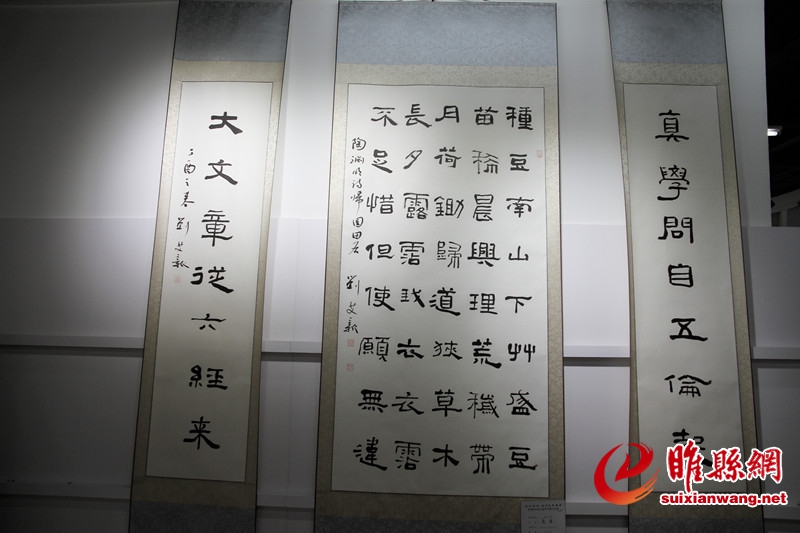 真學問自五倫起
種豆南山下艸盛豆
苗稀晨興理荒穢帶
月荷鋤歸道狹草木
長夕露霑我衣衣霑
不足惜但使願無違
陶淵明詩歸園田居 劉
大文章從六經来
丁酉之春 劉
睢縣網
suixianwang.net